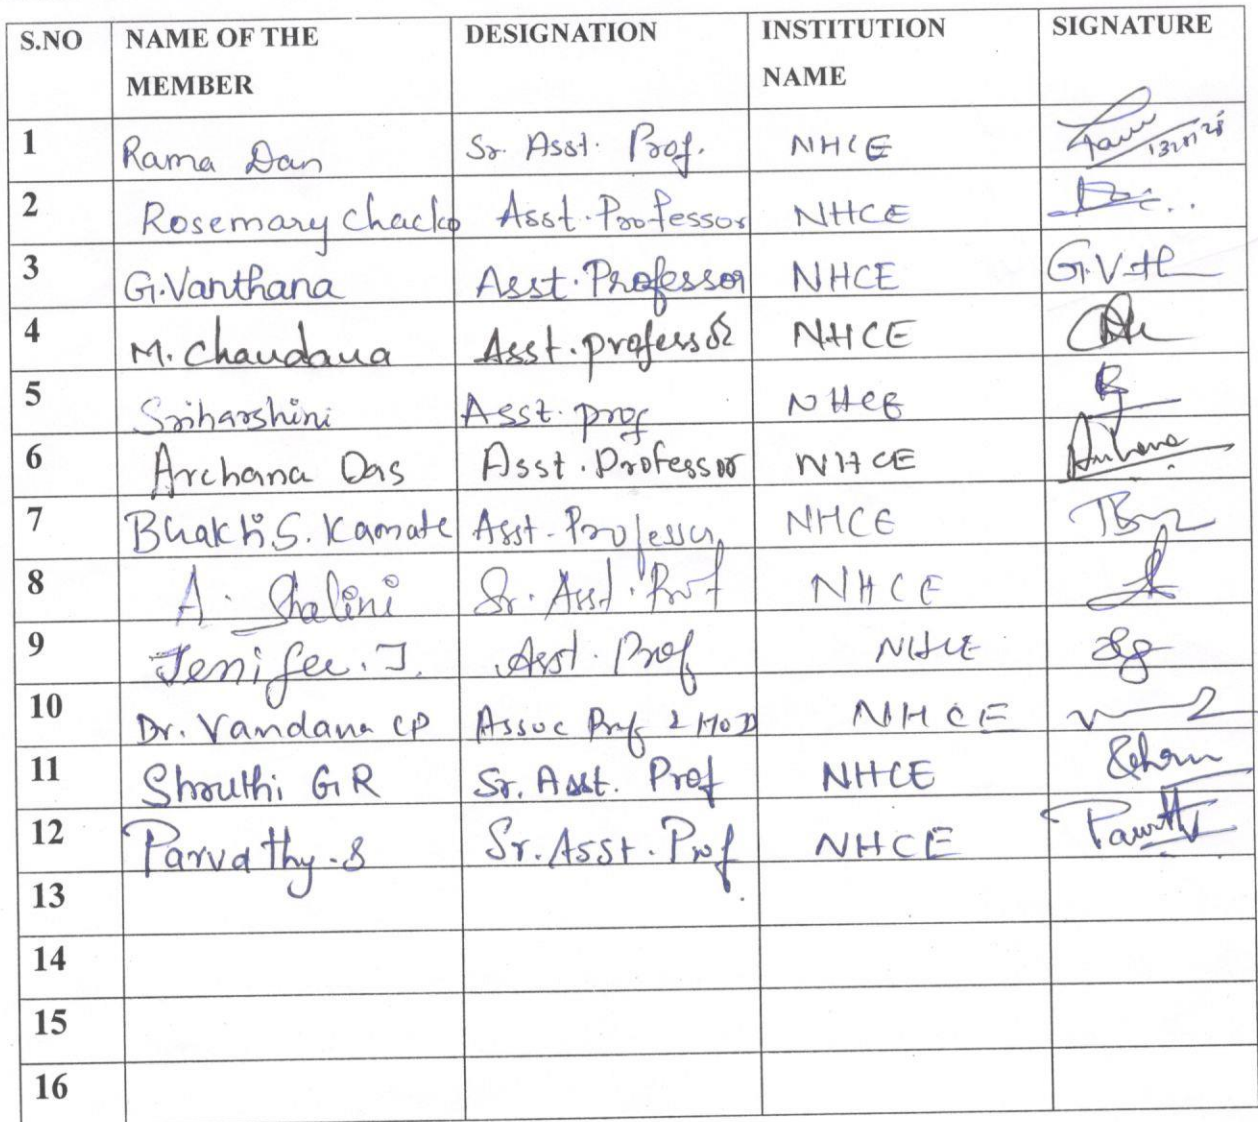 S.NO NAME OF THE MEMBER DESIGNATION INSTITUTION NAME SIGNATURE
1 Rama Dan Sr. Asst. Prof. NHCE
2 Rosemary Chacko Asst. Professor NHCE
3 G.Vanthana Asst. Professor NHCE G.V
4 M. Chandana Asst. professor NHCE
5 Sriharshini Asst. prof NHCE
6 Archana Das Asst. Professor NHCE
7 Bhakti.S. Kamate Asst. Professor NHCE
8 A. Shalini Sr. Asst. Prof NHCE
9 Jenifer. J. Asst. Prof NHCE
10 Dr. Vandana CP Assoc Prof & HOD NHCE
11 Shruthi G R Sr. Asst. Prof NHCE
12 Parvathy. S Sr. Asst. Prof NHCE
13
14
15
16